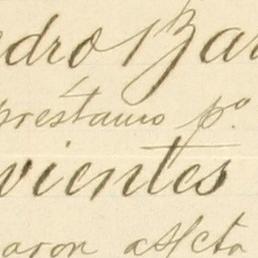 edro Bar
préstamo p.o
vientes
aron afecta